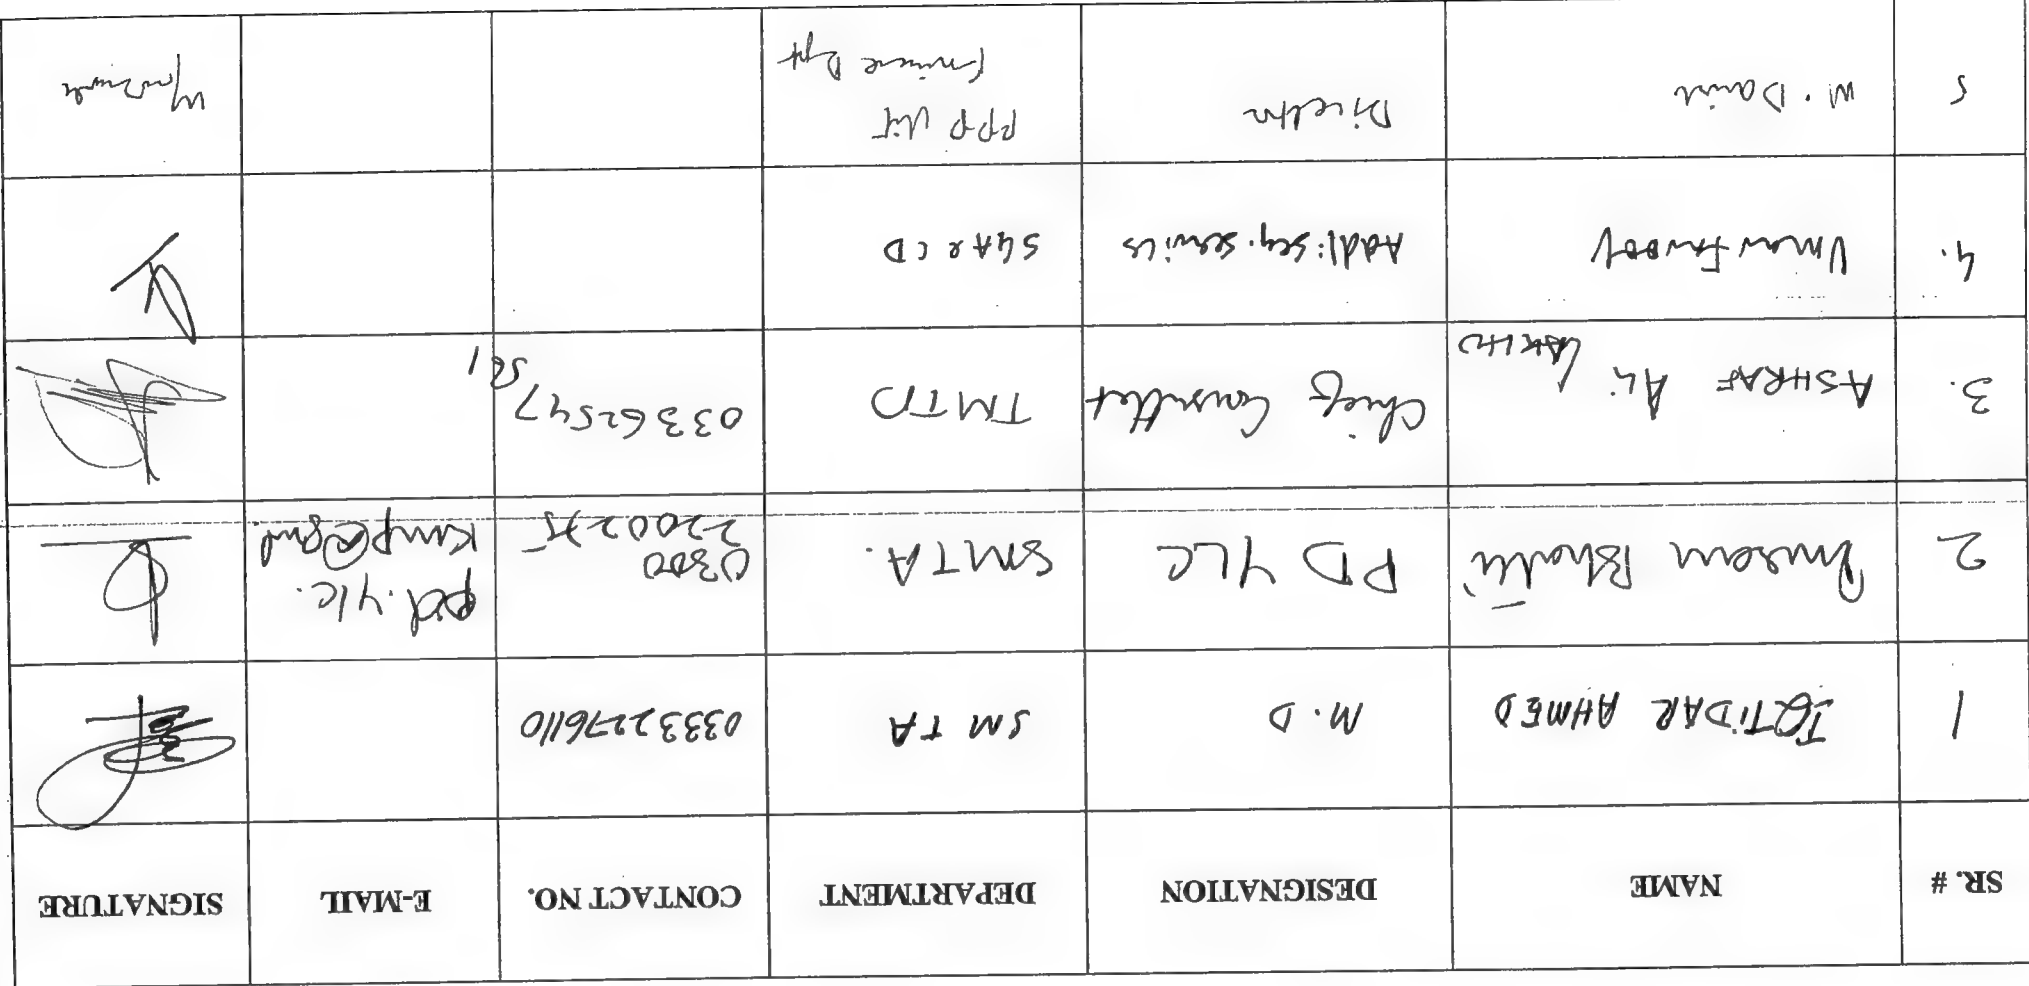 SR. # NAME DESIGNATION DEPARTMENT CONTACT NO. E-MAIL SIGNATURE
1 IQTIDAR AHMED M.D SMTA 03332276110
2 Bhatti PD YLC SMTA. 0300 2200275 pd.ylc.
3. ASHRAF ALI Chief TMTD 03362547
4. Umar Farooq Addl: Sey. Services SGA&CD
5 M. Danish Director PPP Unit
Finance Dept